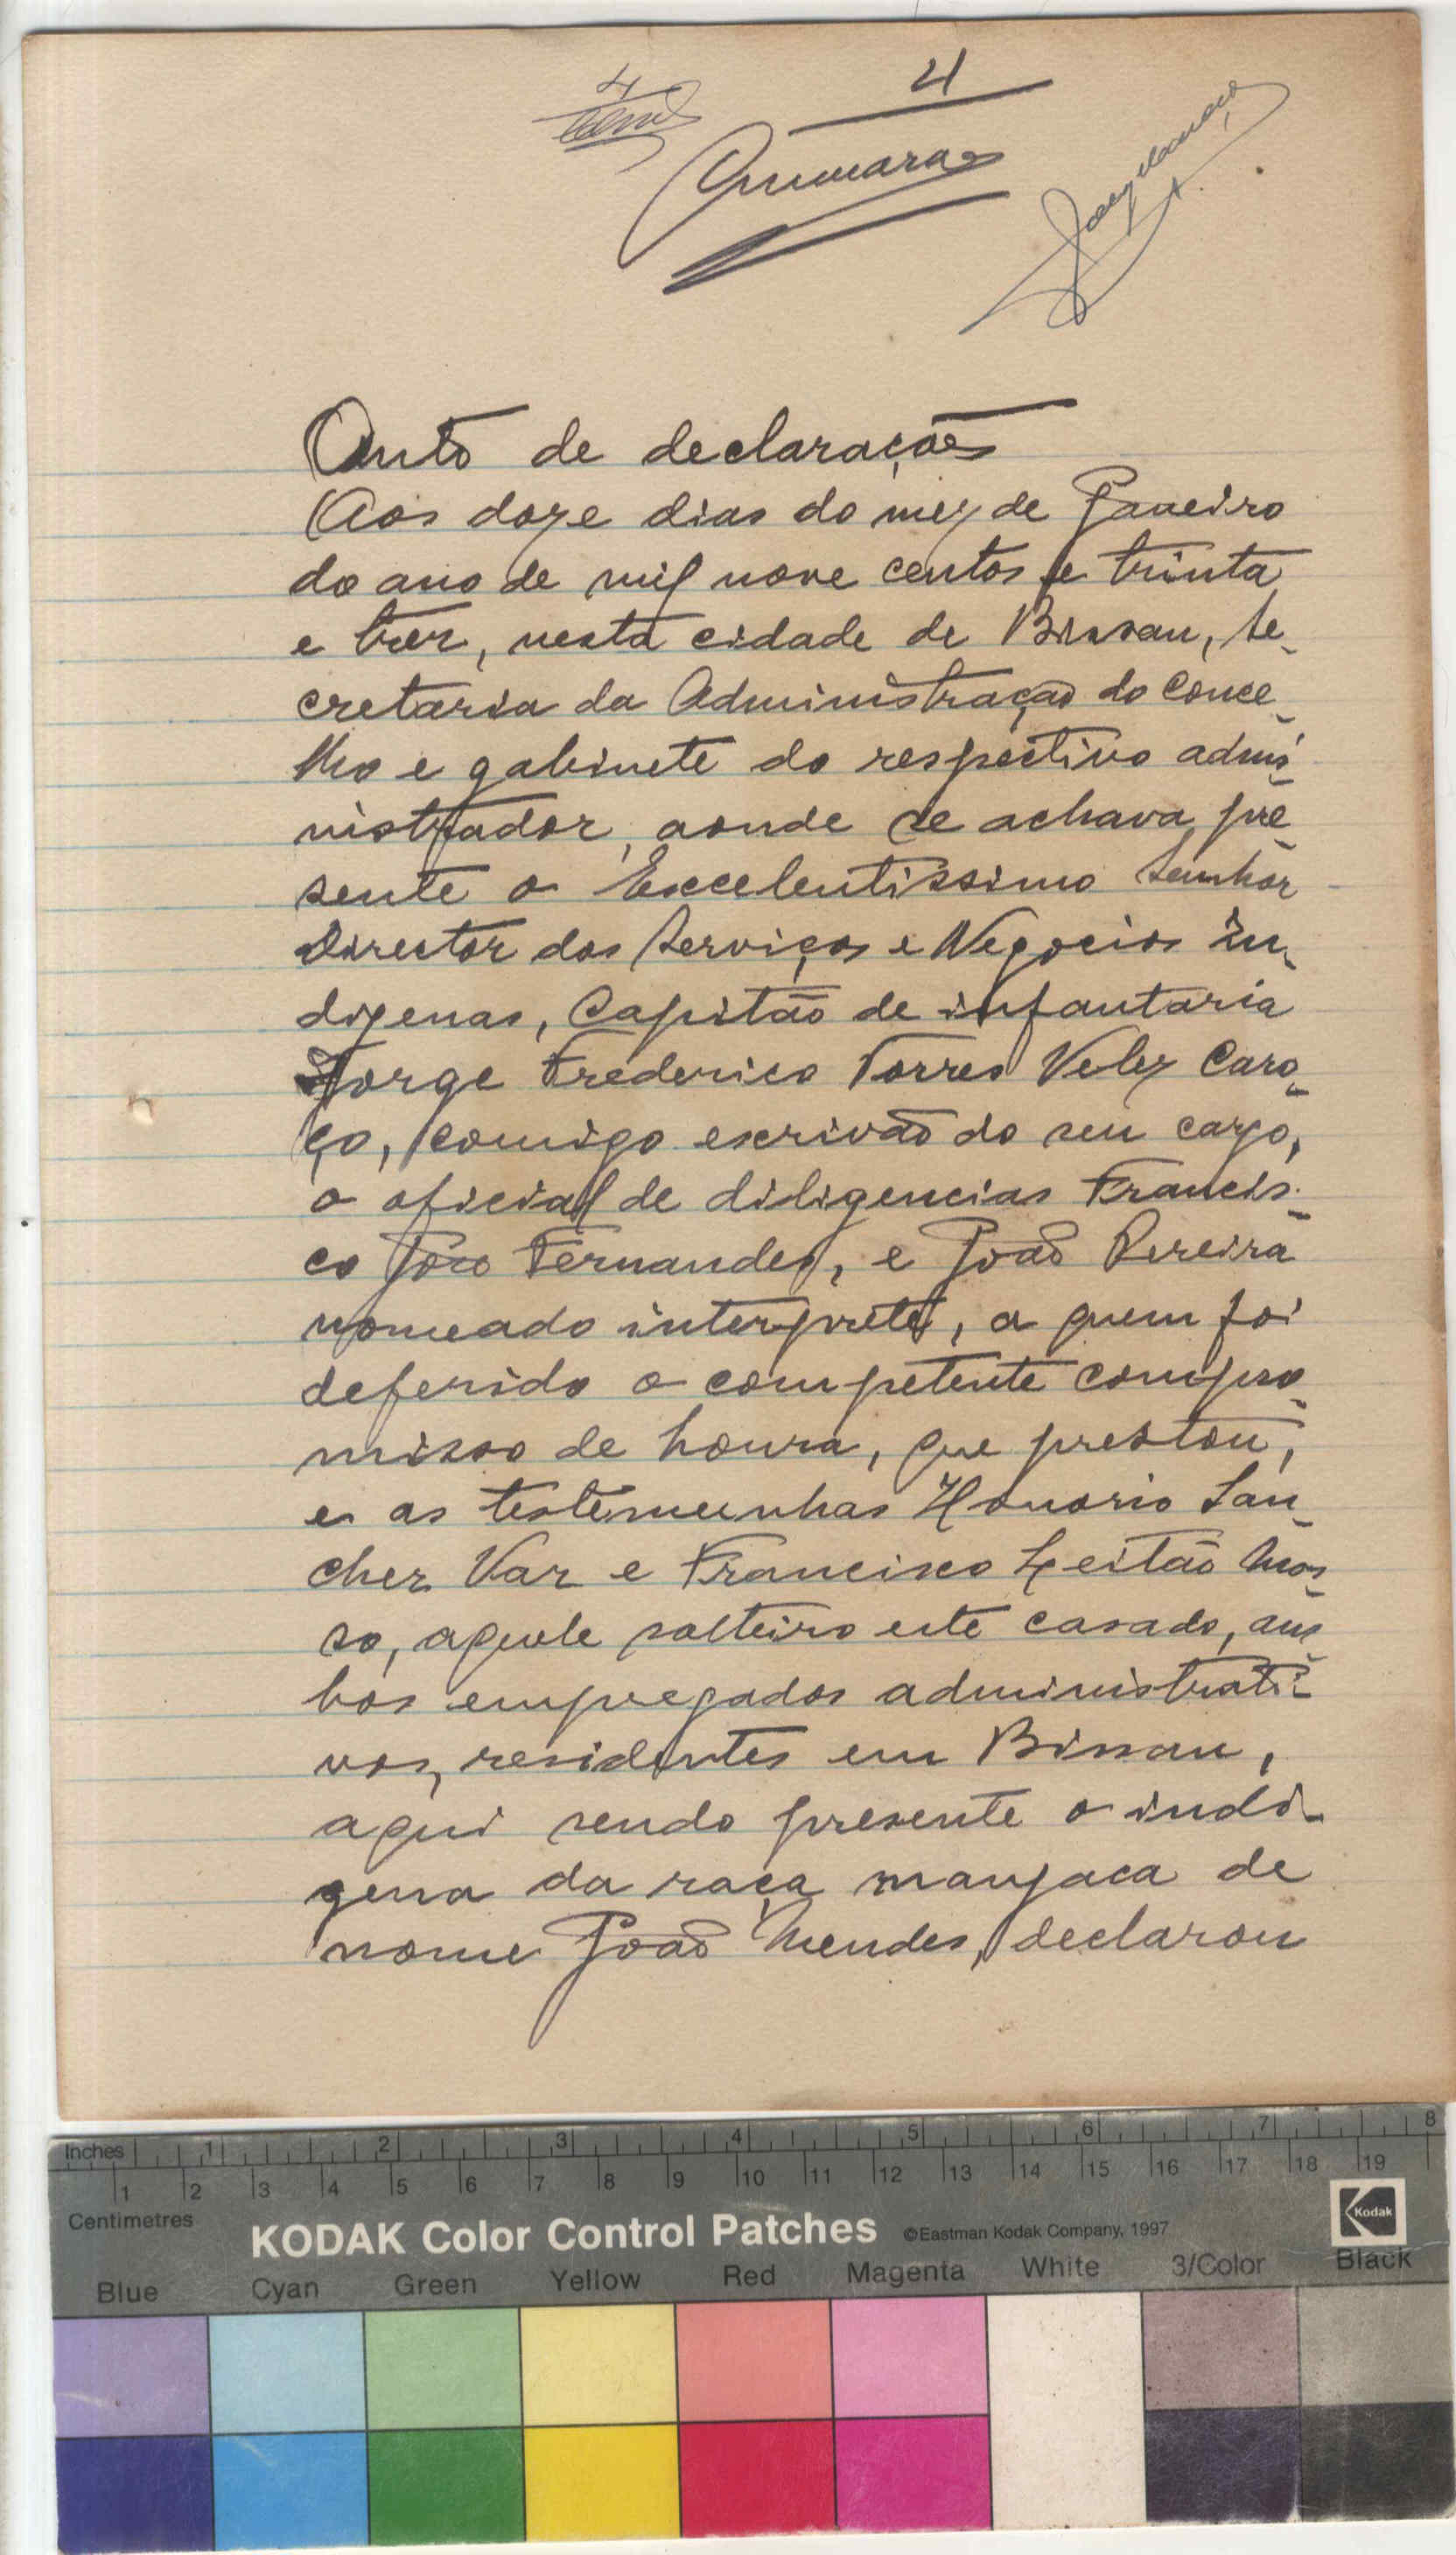 4
4
Guimarães
Auto de declarações
Aos doze dias do mez de Janeiro
do ano de mil nove centos e trinta
e trez, nesta cidade de Bissau, se-
cretaria da Administração do Conce-
lho e gabinete do respectivo admi-
nistrador, aonde se achava pre-
sente o Excelentissimo Senhor
Director dos Serviços e Negocios In-
digenas, Capitão de infantaria
Jorge Frederico Torres Velez Caro-
ço, comigo escrivão do seu cargo,
o oficial de diligencias Francis-
co José Fernandes, e João Pereira
nomeado interprete, a quem foi
deferido o competente compro-
misso de honra, que prestou,
e as testemunhas Honorio San-
chez Vaz e Francisco Leitão Mos-
so, aquele solteiro este casado, am-
bos empregados administrati-
vos, residentes em Bissau,
aqui sendo presente o indi-
gena da raça manjaca de
nome João Mendes, declarou
Inches 1 2 3 4 5 6 7 8
1 2 3 4 5 6 7 8 9 10 11 12 13 14 15 16 17 18 19
Centimetres
KODAK Color Control Patches ©Eastman Kodak Company, 1997 Kodak
Blue Cyan Green Yellow Red Magenta White 3/Color Black